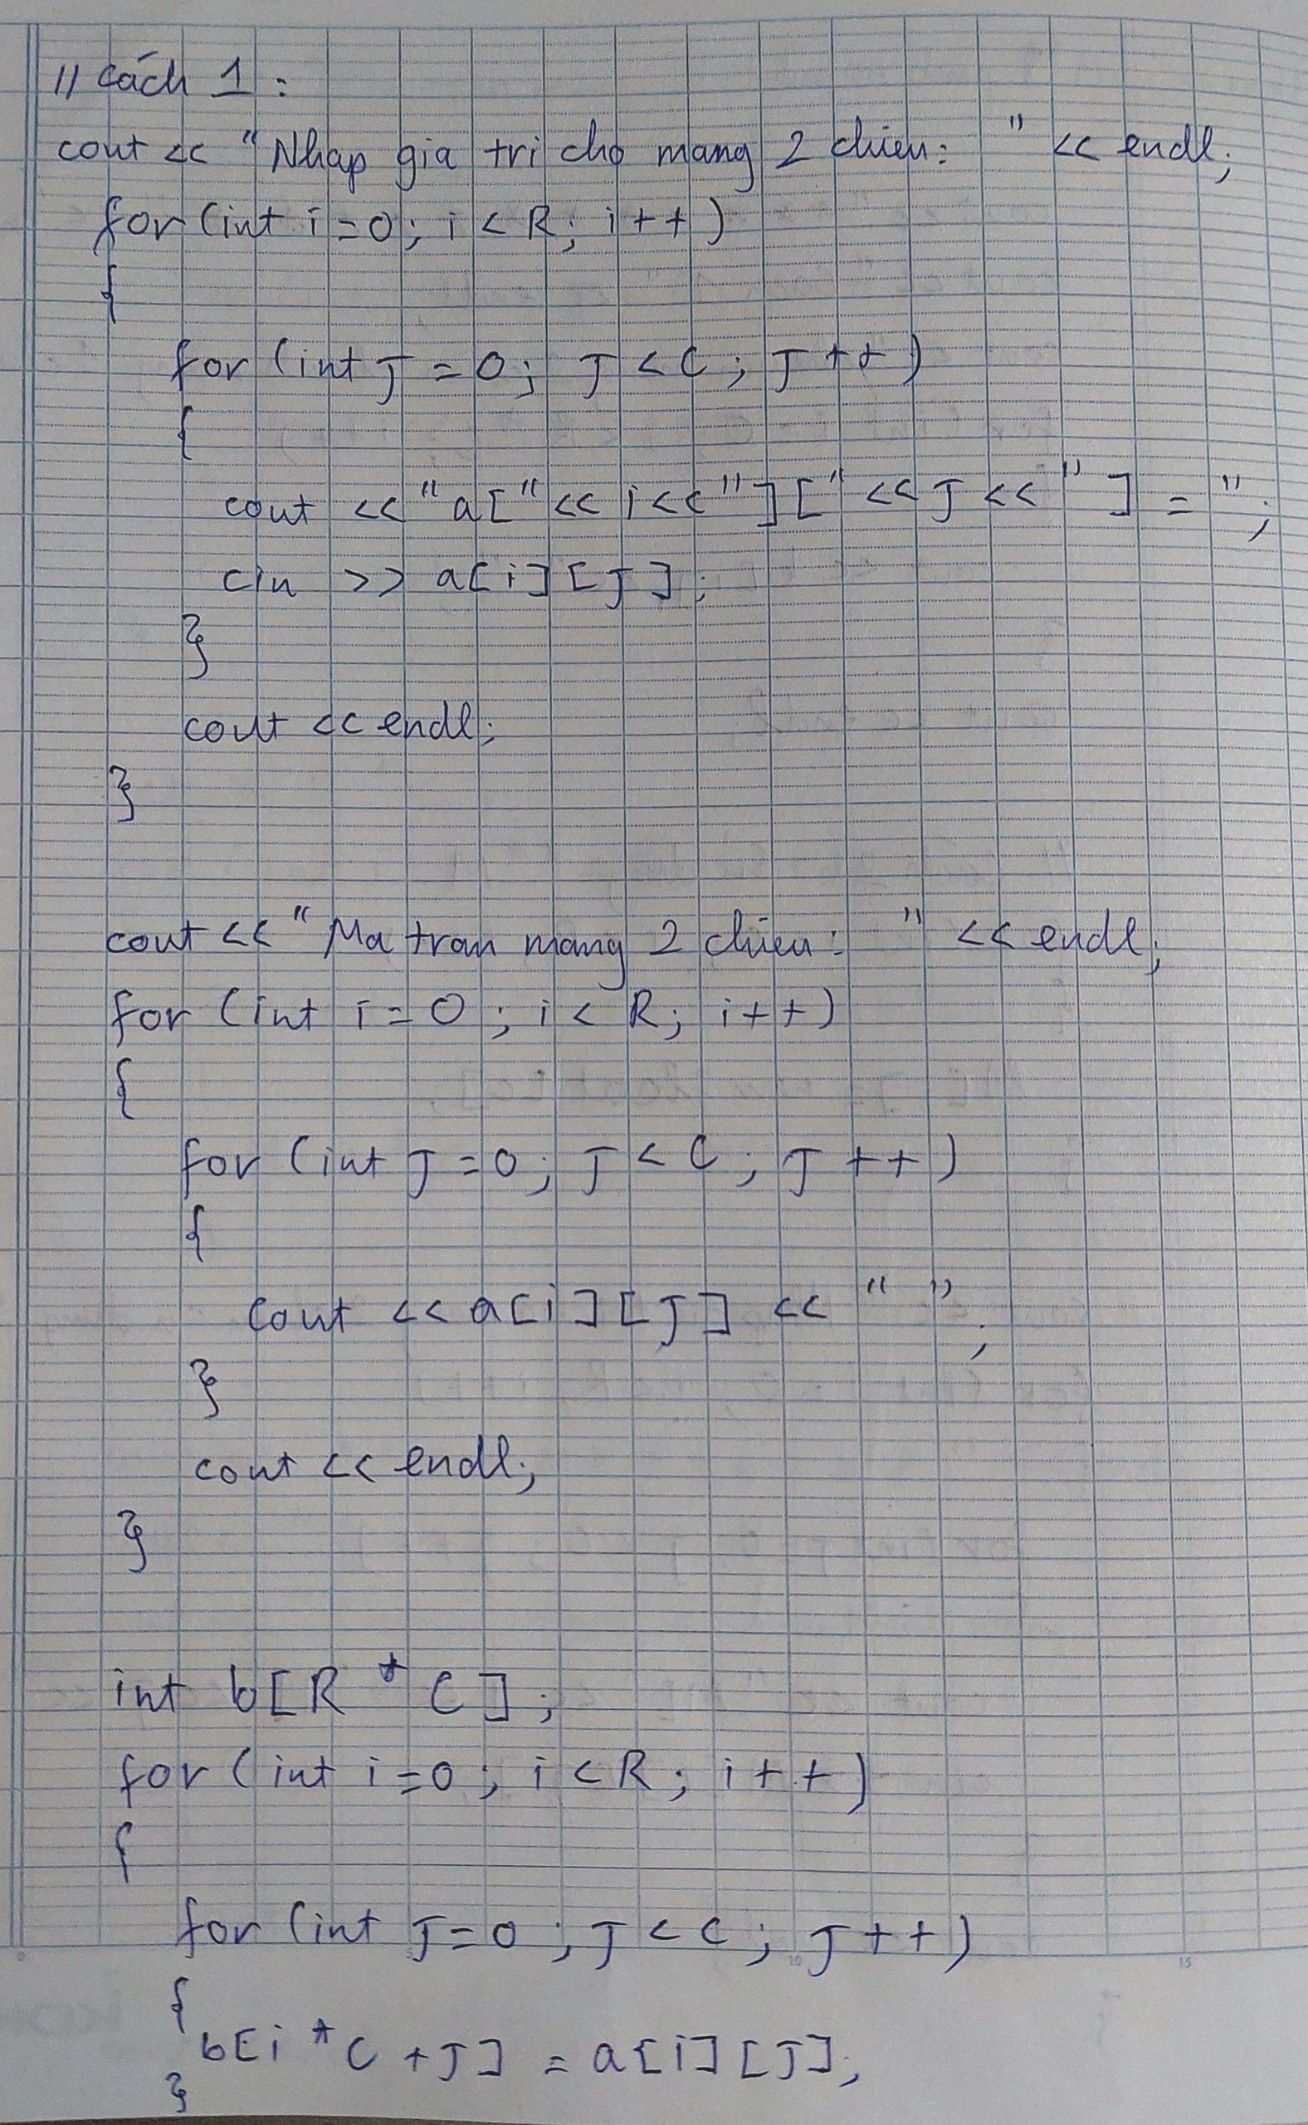 // Cách 1 :
cout << "Nhap gia tri cho mang 2 chieu: " << endl;
for (int i = 0; i < R; i++)
{
for (int J = 0; J < C; J++)
{
cout << "a[" << i << "][" << J << "] = ";
cin >> a[i][J];
}
cout << endl;
}
cout << "Ma tran mang 2 chieu: " << endl;
for (int i = 0; i < R; i++)
{
for (int J = 0; J < C; J++)
{
cout << a[i][J] << " ";
}
cout << endl;
}
int b[R * C];
for (int i = 0; i < R; i++)
{
for (int J = 0; J < C; J++)
{
b[i * C + J] = a[i][J];
}